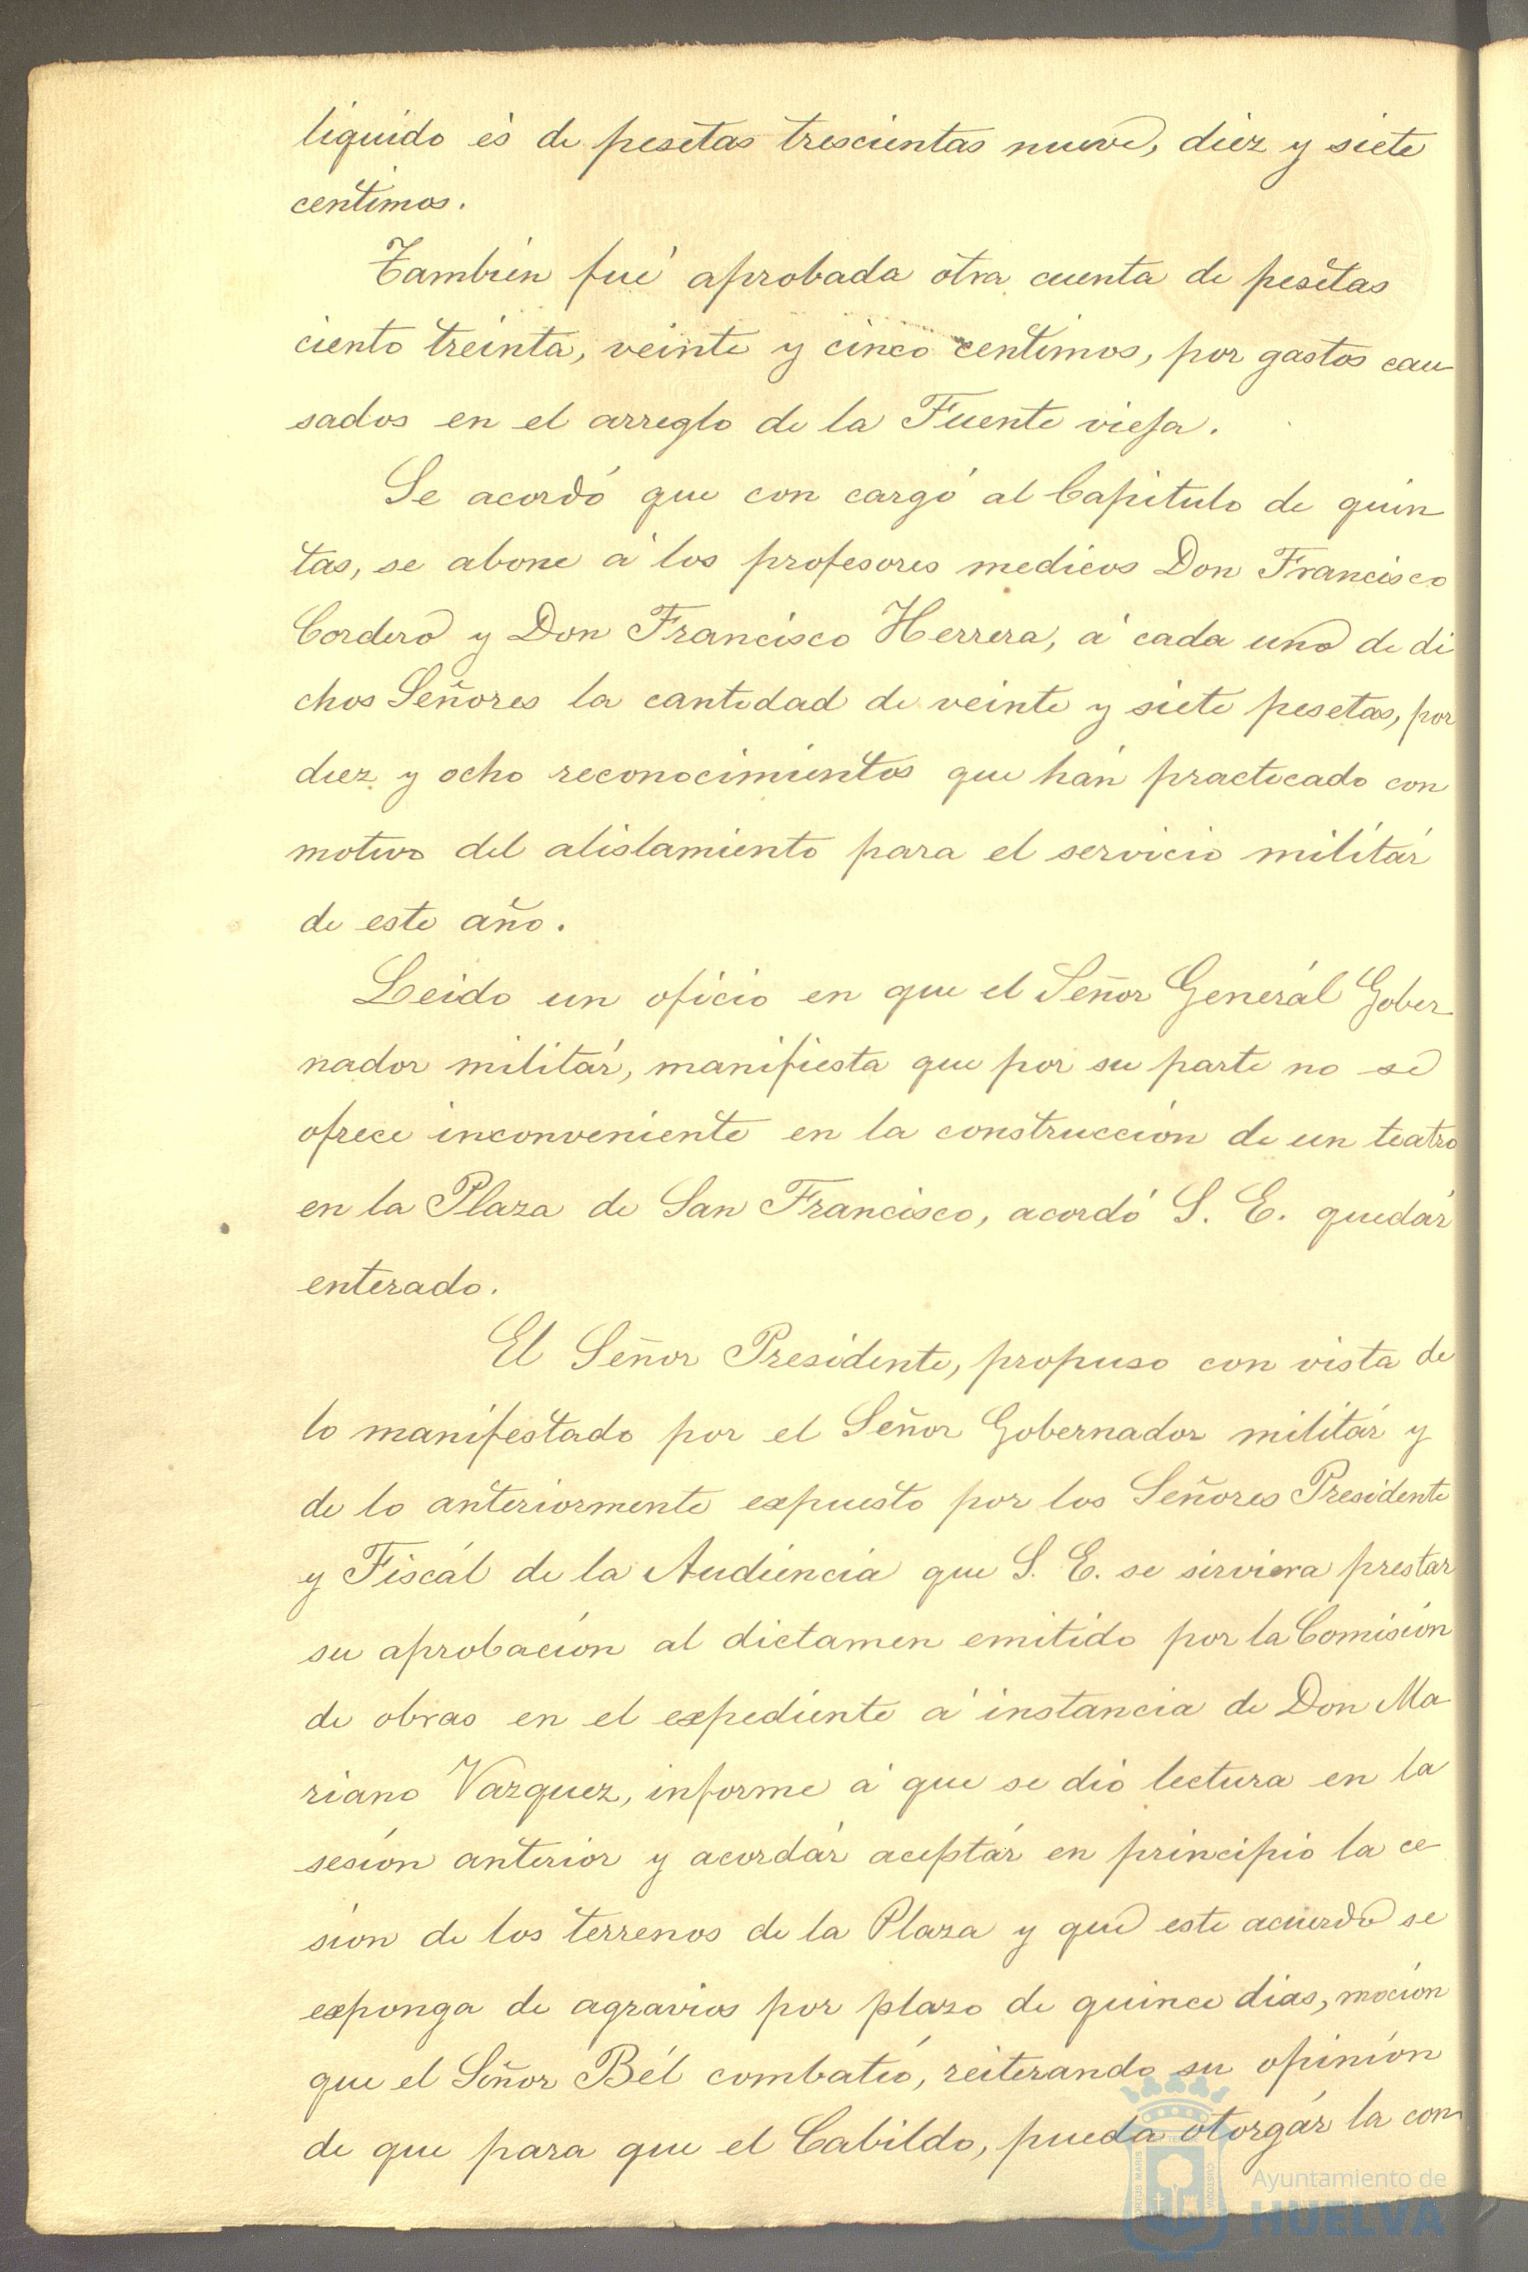 liquido és de pesetas trescientas nueve, diez y siete
centimos.
Tambien fué aprobada otra cuenta de pesetas
ciento treinta, veinte y cinco centimos, por gastos cau
sados en el arreglo de la Fuente vieja.
Se acordó que con cargó al Capitulo de quin
tas, se abone á los profesores medicos Don Francisco
Cordero y Don Francisco Herrera, á cada uno de di
chos Señores la cantidad de veinte y siete pesetas, por
diez y ocho reconocimientos que hán practicado con
motivo del alistamiento para el servicio militár
de este año.
Leido un oficio en que el Señor Generál Gober
nador militár, manifiesta que por su parte no se
ofrece inconveniente en la construccion de un teatro
en la Plaza de San Francisco, acordó S. E. quedár
enterado.
El Señor Presidente, propuso con vista de
lo manifestado por el Señor Gobernador militár y
de lo anteriormente expuesto por los Señores Presidente
y Fiscál de la Audiencia que S. E. se sirviera prestar
su aprobación al dictamen emitido por la Comisión
de obras en el expediente á instancia de Don Ma
riano Vazquez, informe á que se dió lectura en la
sesión anterior y acordár aceptár en principio la ce
sion de los terrenos de la Plaza y que este acuerdo se
exponga de agravios por plazo de quince dias, moción
que el Señor Bél combatió, reiterando su opinión
de que para que el Cabildo, pueda otorgár la con
PORTUS MARIS CUSTODIA
Ayuntamiento de
HUELVA